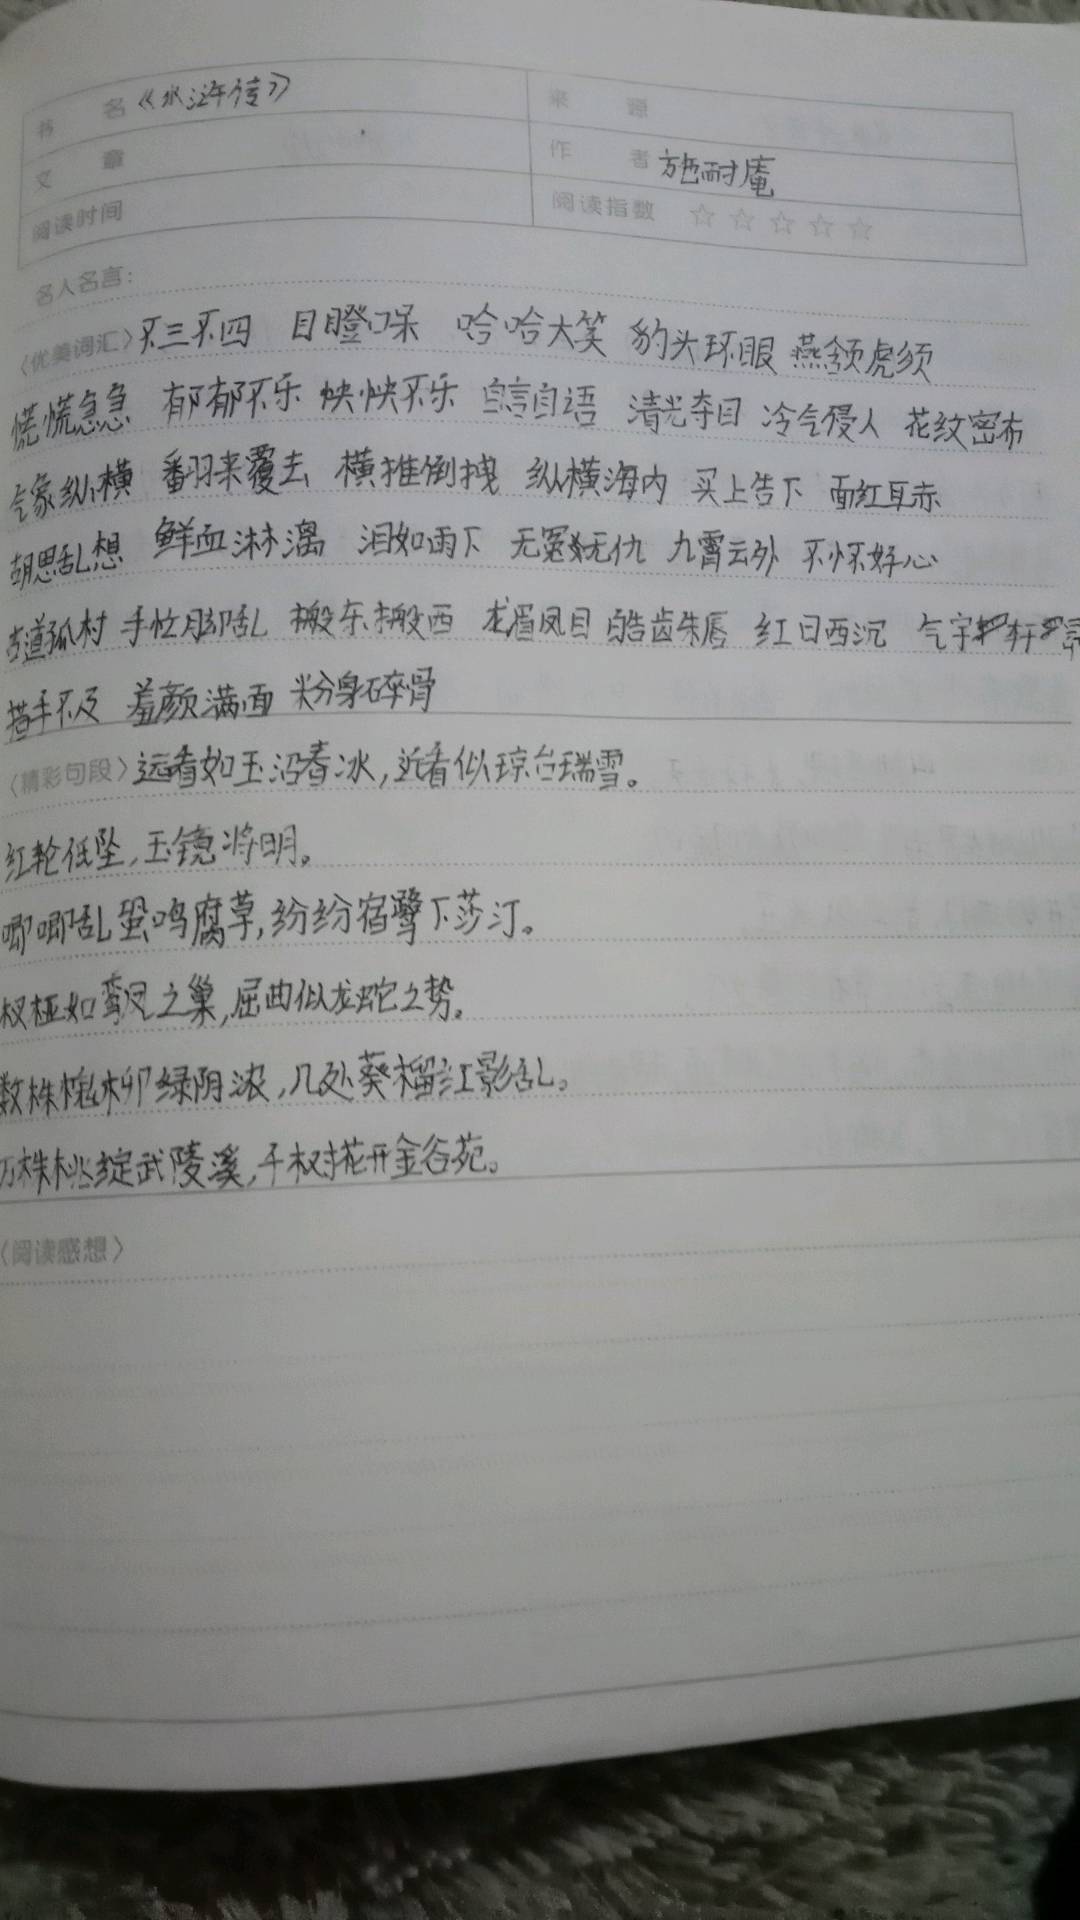 书 名 《水浒传》 来 源
文 章 作 者 施耐庵
阅读时间 阅读指数 ☆☆☆☆☆
名人名言：
〈优美词汇〉不三不四 目瞪口呆 哈哈大笑 豹头环眼 燕颔虎须
慌慌急急 郁郁不乐 怏怏不乐 自言自语 清光夺目 冷气侵人 花纹密布
气象纵横 翻来覆去 横推倒拽 纵横海内 买上告下 面红耳赤
胡思乱想 鲜血淋漓 泪如雨下 无冤无仇 九霄云外 不怀好心
古道孤村 手忙脚乱 搬东搬西 龙眉凤目 皓齿朱唇 红日西沉 气宇轩
措手不及 羞颜满面 粉身碎骨
〈精彩句段〉远看如玉沼春冰，近看似琼台瑞雪。
红轮低坠，玉镜将明。
唧唧乱蛩鸣腐草，纷纷宿鹭下莎汀。
杈桠如鸾凤之巢，屈曲似龙蛇之势。
数株槐柳绿阴浓，几处葵榴红影乱。
万株桃绽武陵溪，千树花开金谷苑。
〈阅读感想〉